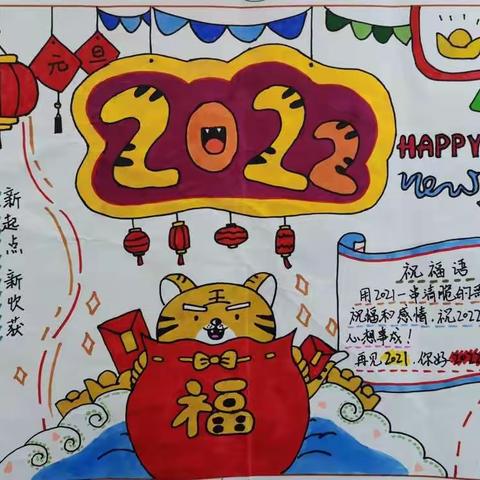 元旦
2022
HAPPY
new
新起点 新收获
祝福语
用2021一串清脆的
祝福和感情,祝2022
心想事成!
再见2021,你好
王
福